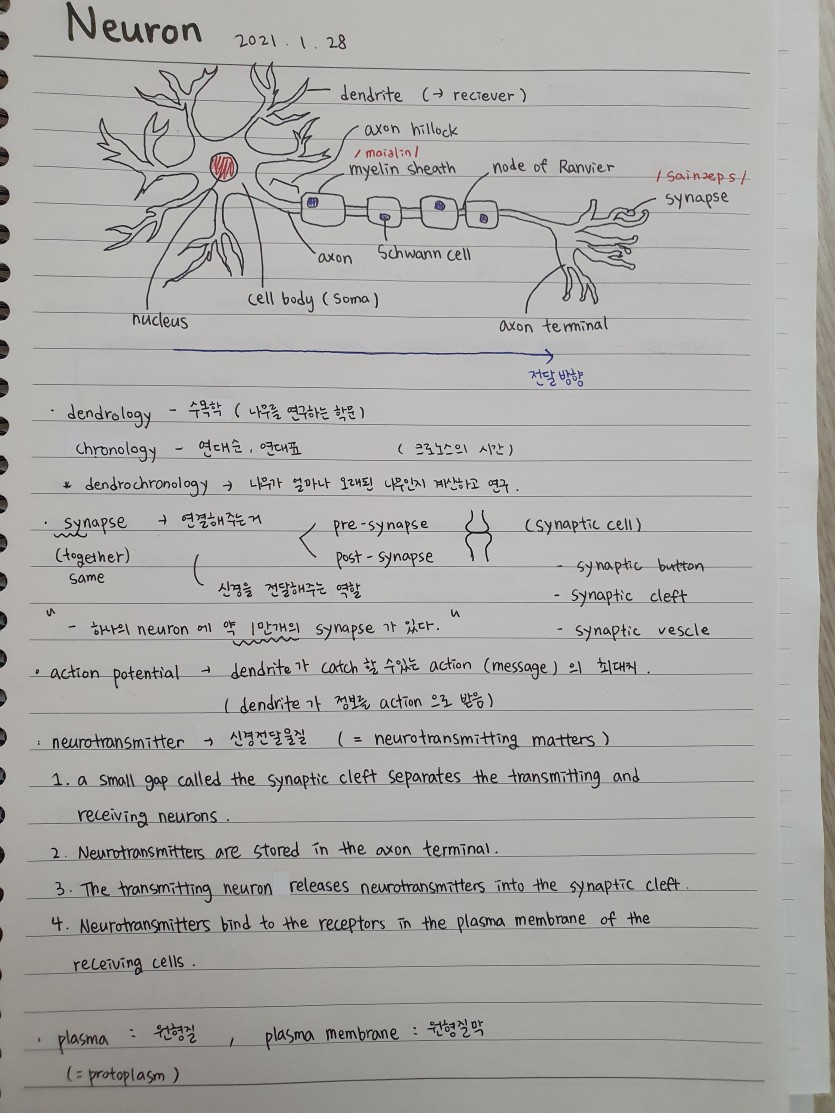 Neuron 2021. 1. 28
dendrite (→ reciever)
axon hillock
/maialin/
myelin sheath
node of Ranvier
/sainæps/
synapse
axon
Schwann cell
cell body (soma)
nucleus
axon terminal
전달방향
· dendrology - 수목학 ( 나무를 연구하는 학문)
chronology - 연대순, 연대표 ( 크로노스의 시간)
* dendrochronology → 나무가 얼마나 오래된 나무인지 계산하고 연구.
· synapse → 연결해주는거 < pre-synapse (synaptic cell)
(together) post-synapse - synaptic button
same ( 신경을 전달해주는 역할 - synaptic cleft
" - 하나의 neuron 에 약 1만개의 synapse 가 있다. " - synaptic vescle
· action potential → dendrite가 catch 할 수있는 action (message) 의 최대치.
( dendrite가 정보를 action 으로 받음)
· neurotransmitter → 신경전달물질 ( = neurotransmitting matters )
1. a small gap called the synaptic cleft separates the transmitting and
receiving neurons.
2. Neurotransmitters are stored in the axon terminal.
3. The transmitting neuron releases neurotransmitters into the synaptic cleft.
4. Neurotransmitters bind to the receptors in the plasma membrane of the
receiving cells.
· plasma : 원형질 , plasma membrane : 원형질막
(= protoplasm )